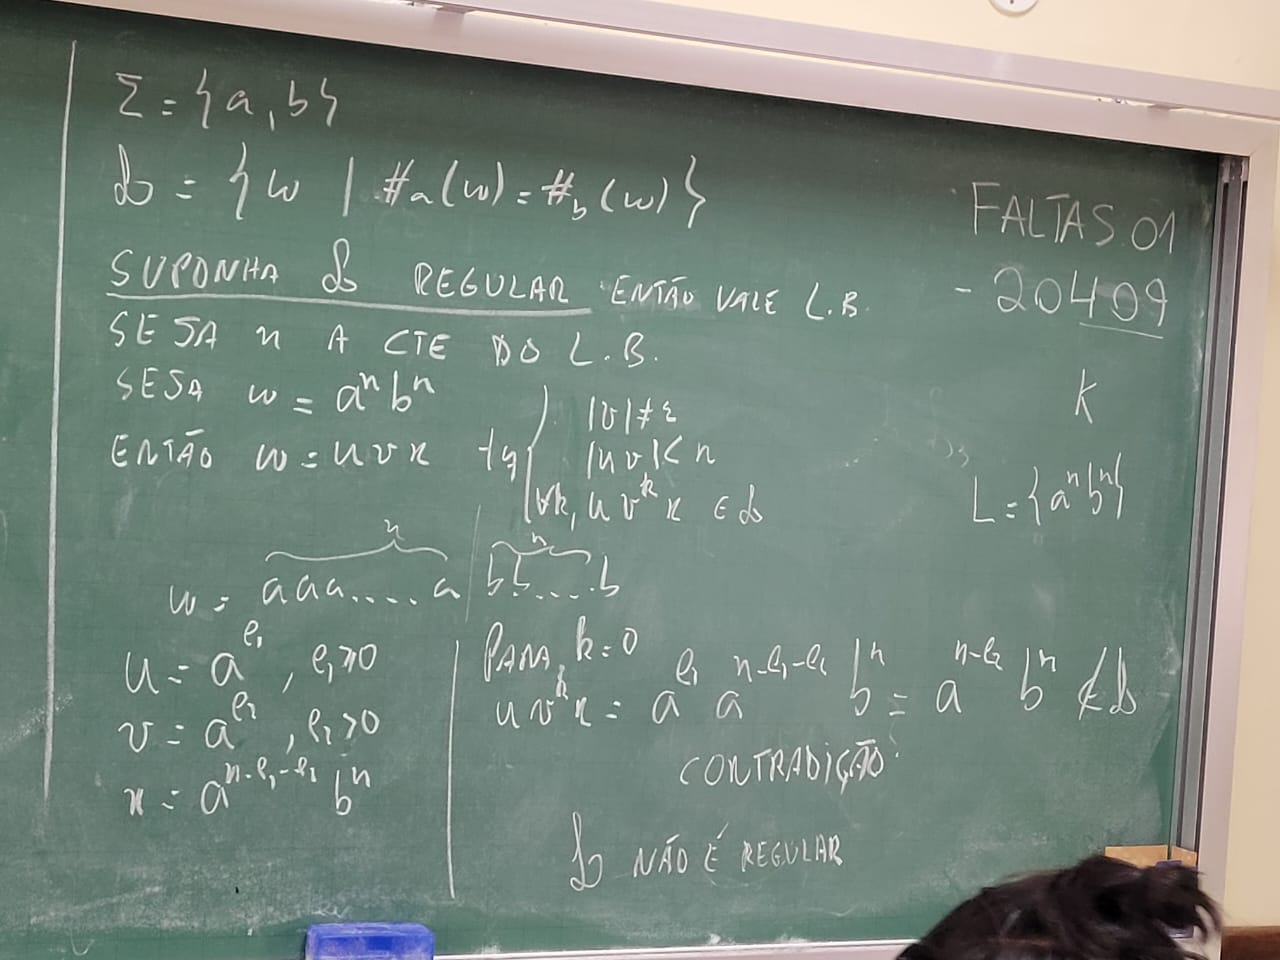 Σ = {a, b}
L = {w | #a(w) = #b(w)}
SUPONHA L REGULAR ENTÃO VALE L.B.
SEJA n A CTE DO L.B.
SEJA w = aⁿbⁿ
ENTÃO w = uvx tq
|v| ≠ ε
|uv| < n
∀k, uvᵏx ∈ L
n n
w = aaa....a bb....b
u = a^ℓ₁, ℓ₁≥0
v = a^ℓ₂, ℓ₂>0
x = a^(n-ℓ₁-ℓ₂) bⁿ
PARA k=0
uvᵏx = a^ℓ₁ a^(n-ℓ₁-ℓ₂) bⁿ = a^(n-ℓ₂) bⁿ ∉ L
CONTRADIÇÃO
L NÃO É REGULAR
FALTAS 01
- 20409
K
L = {aⁿbⁿ}